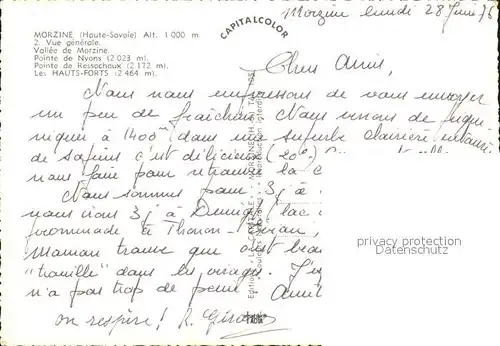 MORZINE (Haute-Savoie) Alt. 1 000 m
2. Vue générale.
Vallée de Morzine.
Pointe de Nyons (2 023 m).
Pointe de Ressachaux (2 172 m).
Les HAUTS-FORTS (2 464 m).
CAPITALCOLOR
Morzine lundi 28 Juin 76
Chers Amis,
Nous nous empressons de vous envoyer
un peu de fraîcheur. Nous venons de pique
niquer à 1400m dans une superbe clairière
de sapins c'est délicieux (20°)
nous faire pour retrouver la c
Nous sommes pour 3j à
nous irons 3j à lac
promenade à Thonon Evian,
Maman trouve que c'est beau
"trouille" dans les virages. J'es
n'a pas trop de peine Amit
on respire! R. Girard
privacy protection
Datenschutz